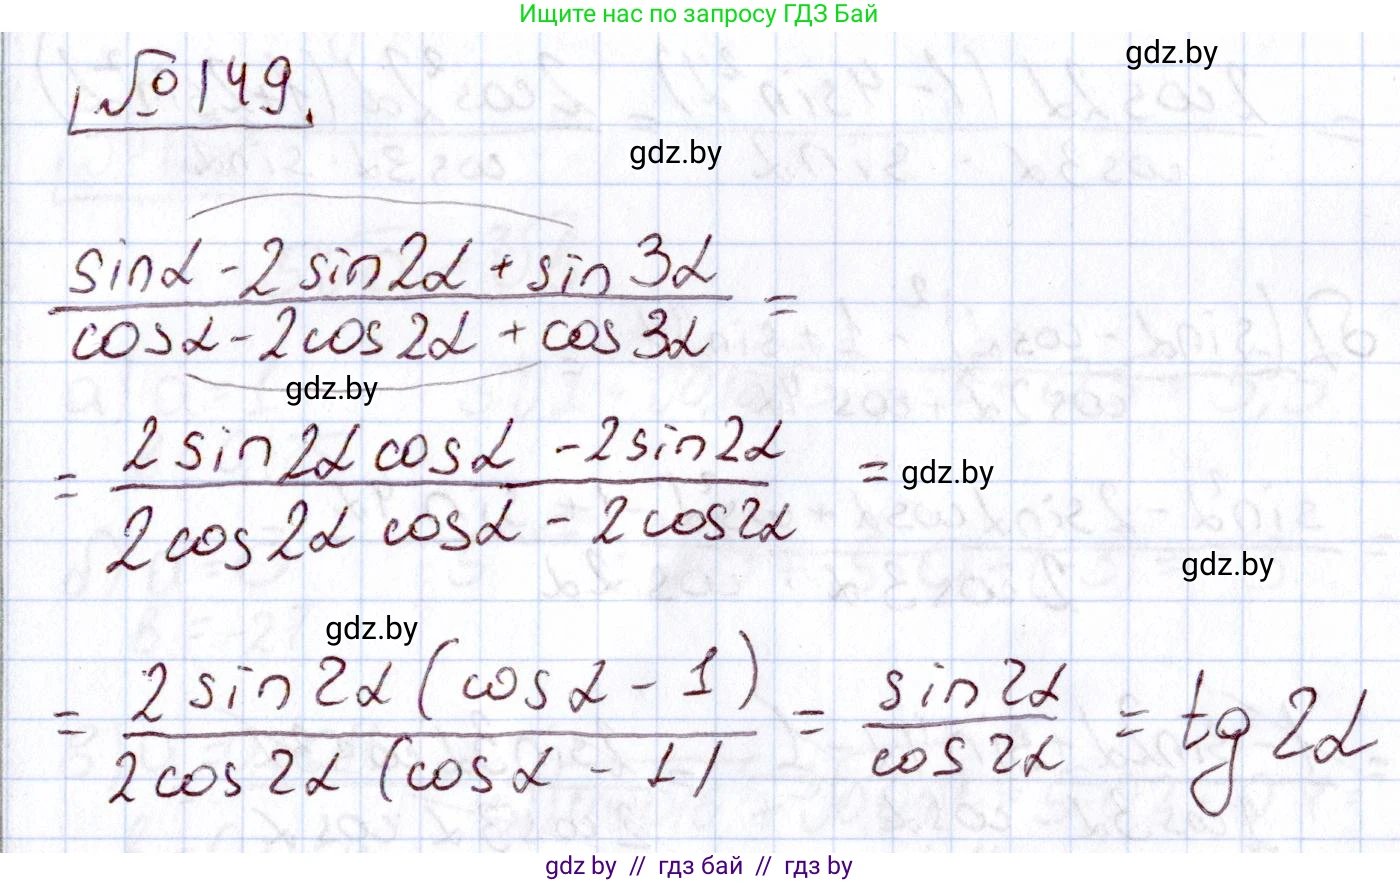 Ищите нас по запросу ГДЗ Бай
gdz.by
№ 149.
gdz.by
sinα - 2 sin2α + sin 3α
cosα - 2cos2α + cos3α
=
gdz.by
= 2 sin 2α cosα - 2 sin2α
2cos2α cosα - 2cos2α
= gdz.by
gdz.by
gdz.by
= 2 sin 2α (cosα - 1)
2cos2α (cosα - 1)
= sin2α
cos2α
= tg 2α
gdz.by // гдз бай // гдз by